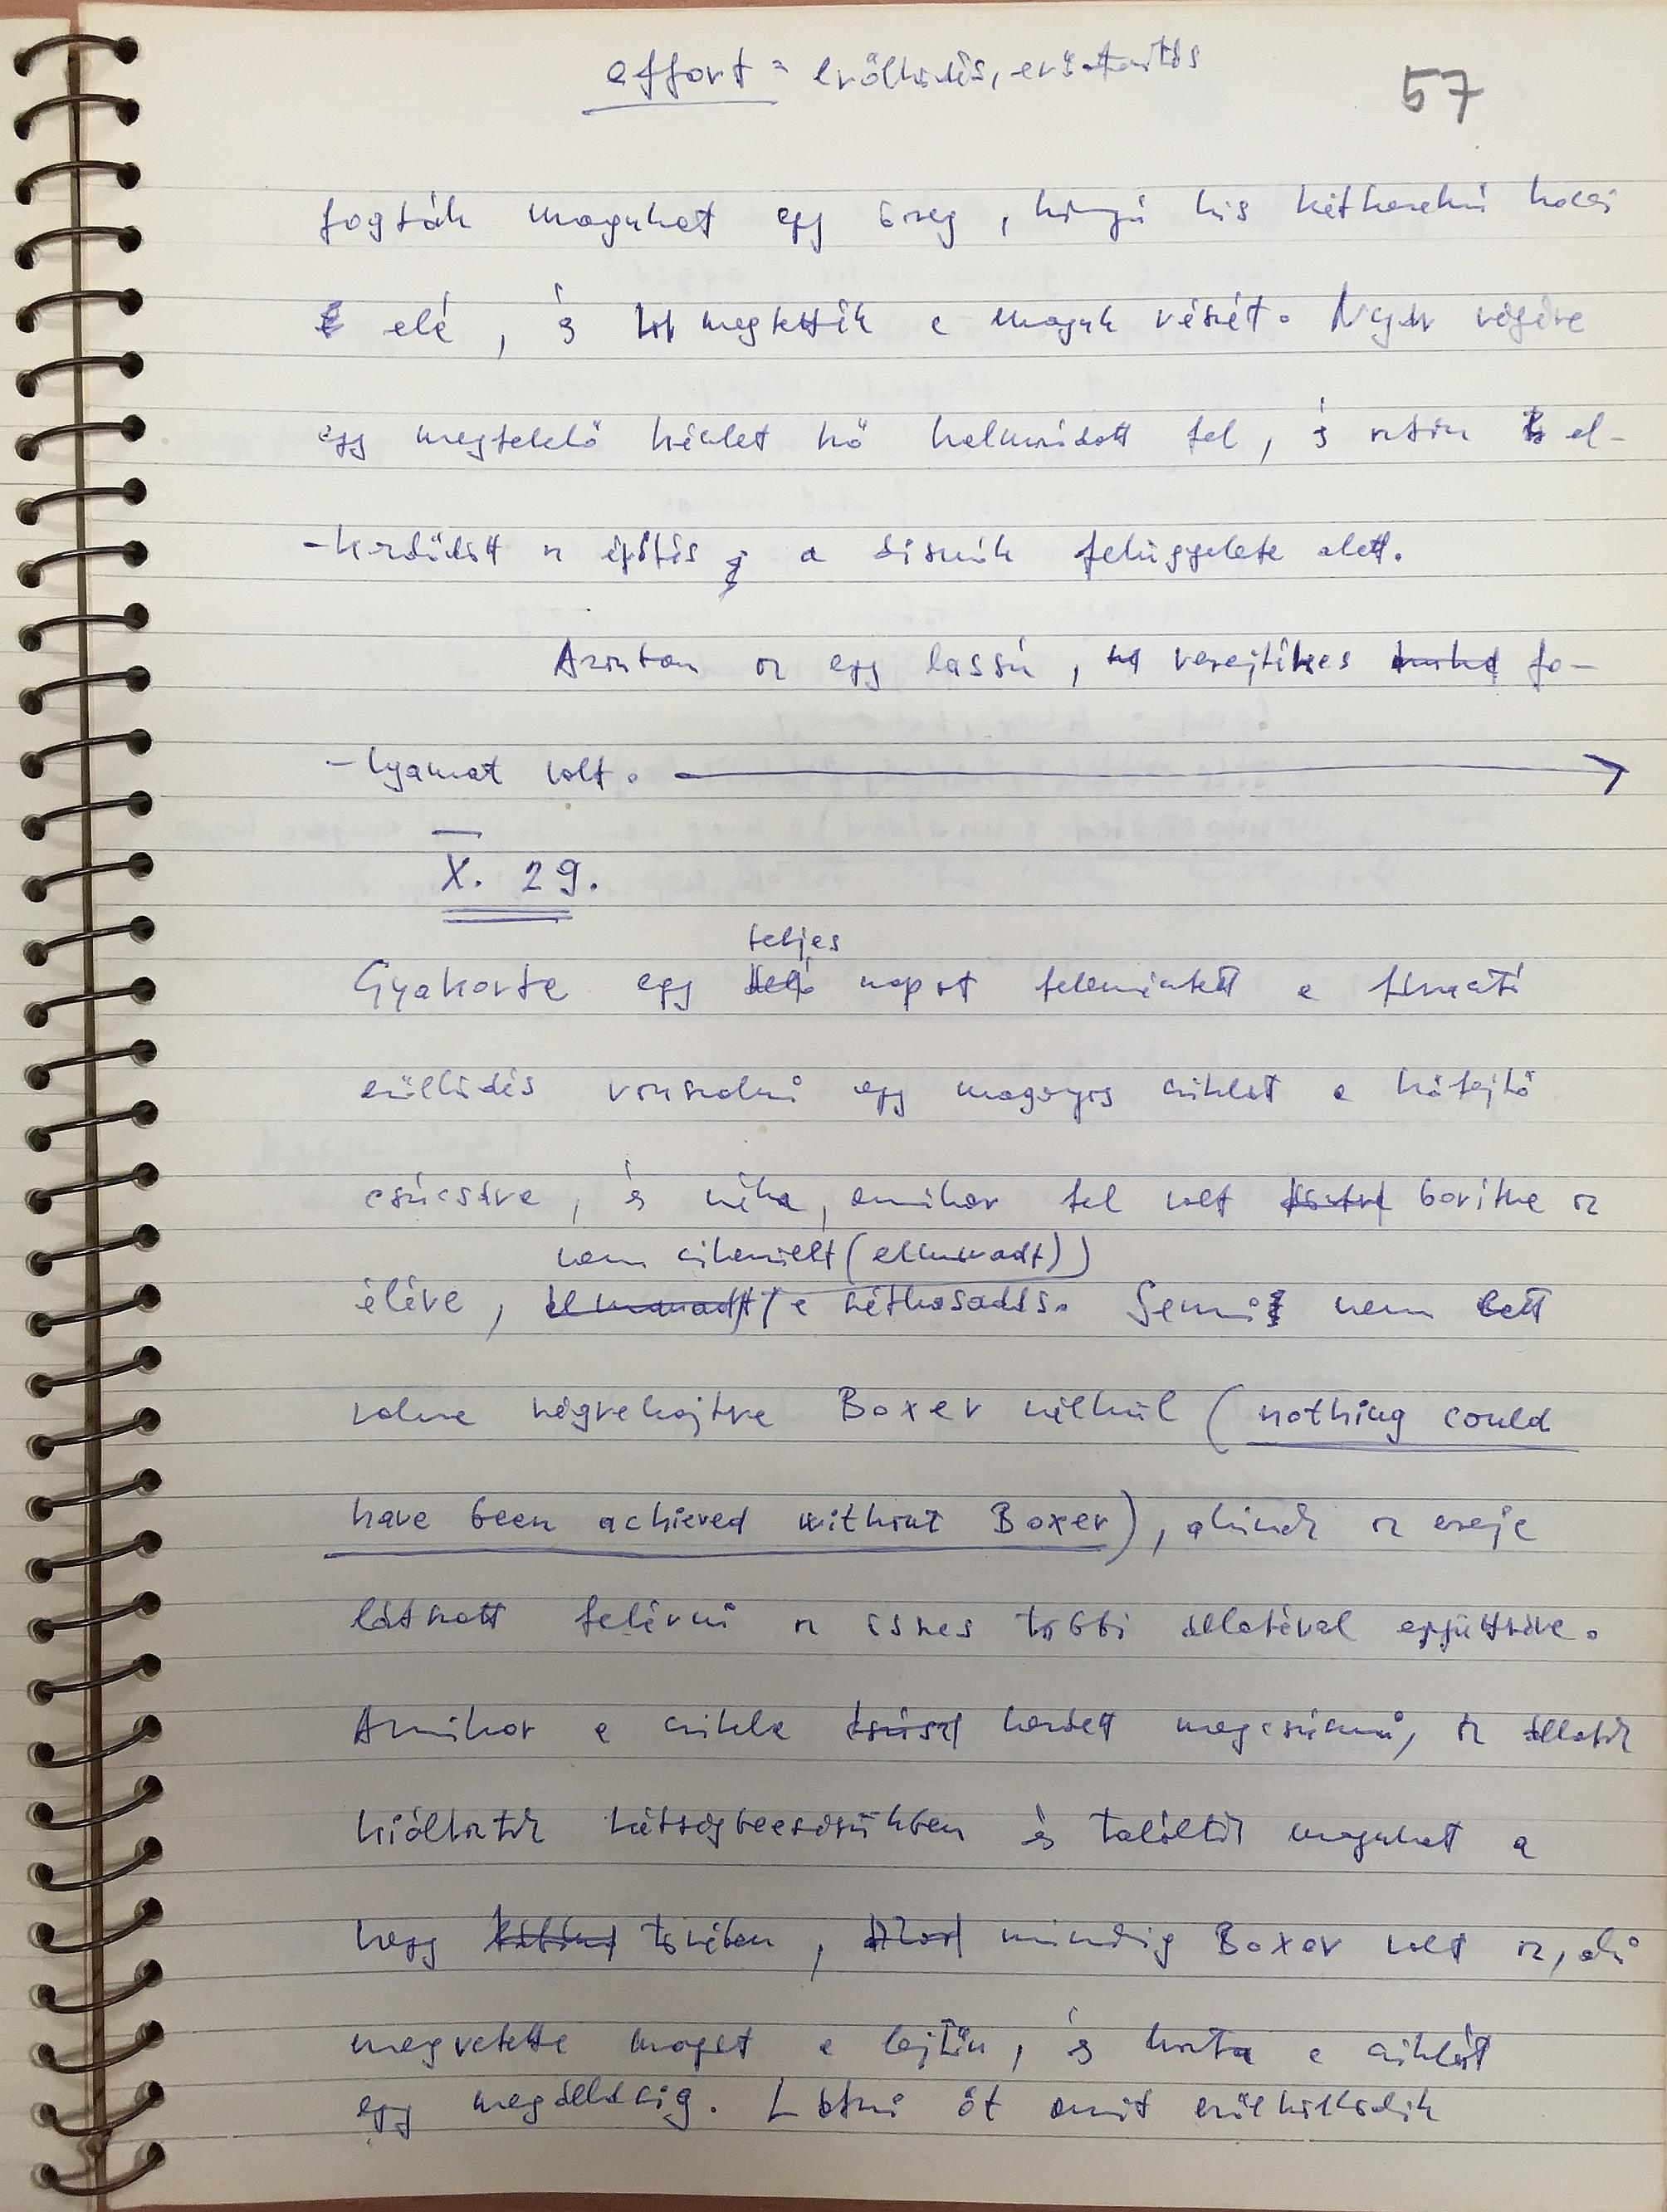 effort = erőlködés, erőfeszítés
57
fogták magukat egy öreg, könnyű kis kétkerekű kocsi
elé, és megtették a maguk részét. Nyár végére
egy megfelelő készlet kő halmozódott fel, és aztán el-
-kezdődött az építés a disznók felügyelete alatt.
Azonban ez egy lassú, verejtékes fo-
-lyamat volt.
X. 29.
teljes
Gyakorta egy napot felemésztett a fárasztó
erőlködés vonszolni egy magányos sziklát a kőfejtő
csúcsára, és néha, amikor fel volt borítva az
nem sikerült (elmaradt))
élére, a széthasadás. Semmi nem lett
volna végrehajtva Boxer nélkül (nothing could
have been achieved without Boxer), akinek az ereje
látszott felérni az összes többi állatéval együttvéve.
Amikor a szikla kezdett megcsúszni, az állatok
kiáltoztak kétségbeesésükben és találták magukat a
hegy tövében, mindig Boxer volt az, aki
megvetette magát a lejtőn, és hozta a sziklát
egy megállásig. Látni őt amint erőlködik